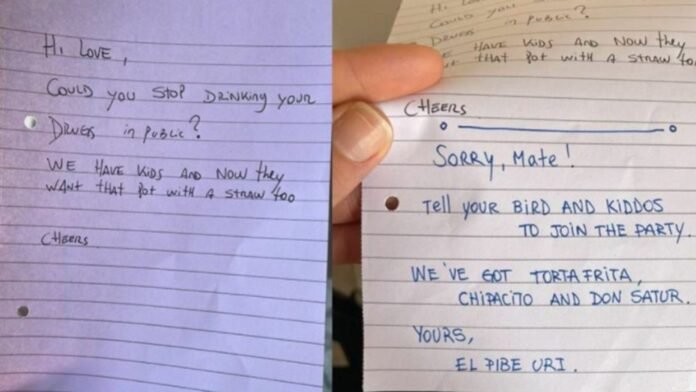 Hi LOVE,
COULD YOU STOP DRINKING YOUR
DRUGS in PUBLIC?
WE HAVE KIDS AND NOW they
WANT tHAt Pot with A StRAW too
CHEERS
COULD YOU
DRUGS in PUBLIC?
HAVE KIDS AND NOW they
tHAt Pot with A StRAW too
CHEERS
SORRY, Mate!
TEll YOUR BiRD AND KIDDOS
TO JOIN THE PARTY.
WE'VE GOT TORTA FRITA,
CHIPACITO AND DON SATUR.
YOURS,
EL PIBE URI.